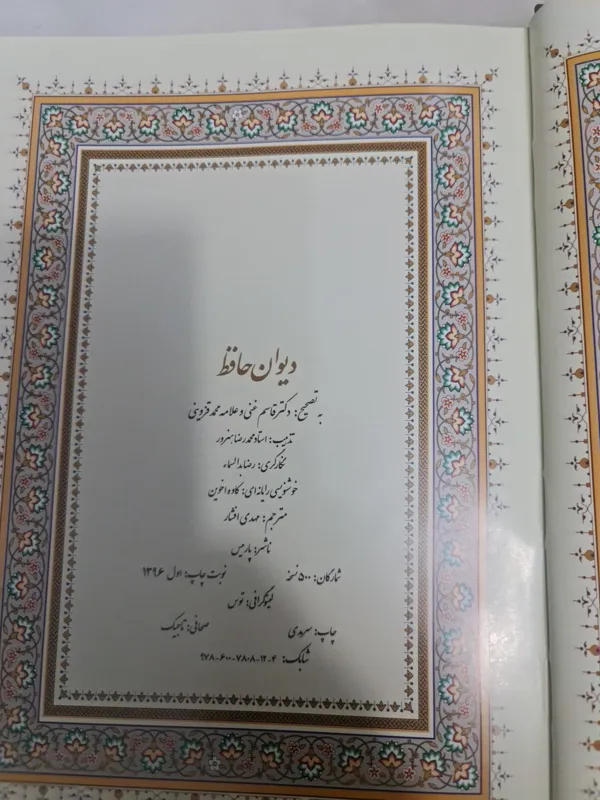 دیوان حافظ
به تصحیح: دکتر قاسم غنی و علامه محمد قزوینی
تذهیب: استاد محمدرضا هنرور
نگارگری: رضا بدرالسماء
خوشنویسی رایانه‌ای: کاوه اخوین
مترجم: مهدی افشار
ناشر: پارمیس
شمارگان: ۵۰۰ نسخه نوبت چاپ: اول ۱۳۹۶
لیتوگرافی: توس
چاپ: سرمدی صحافی: تاجیک
شابک: ۴-۱۲-۷۸۰۸-۶۰۰-۹۷۸